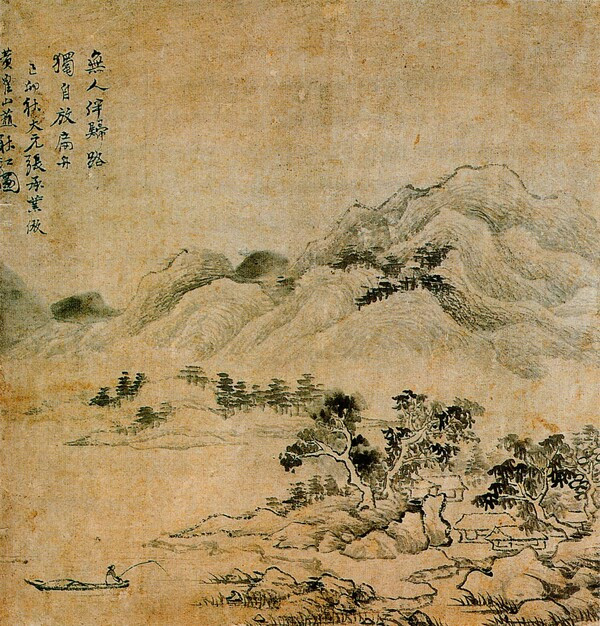 無人伴歸路
獨自放扁舟
己卯秋大元張承業倣
黃隺山樵秋江圖